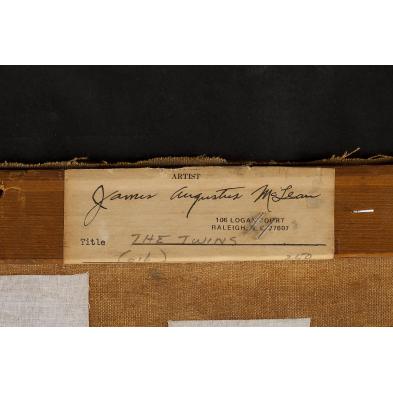 ARTIST
James Augustus McLean
106 LOGAN COURT
RALEIGH, N.C. 27607
Title THE TWINS
(oil)